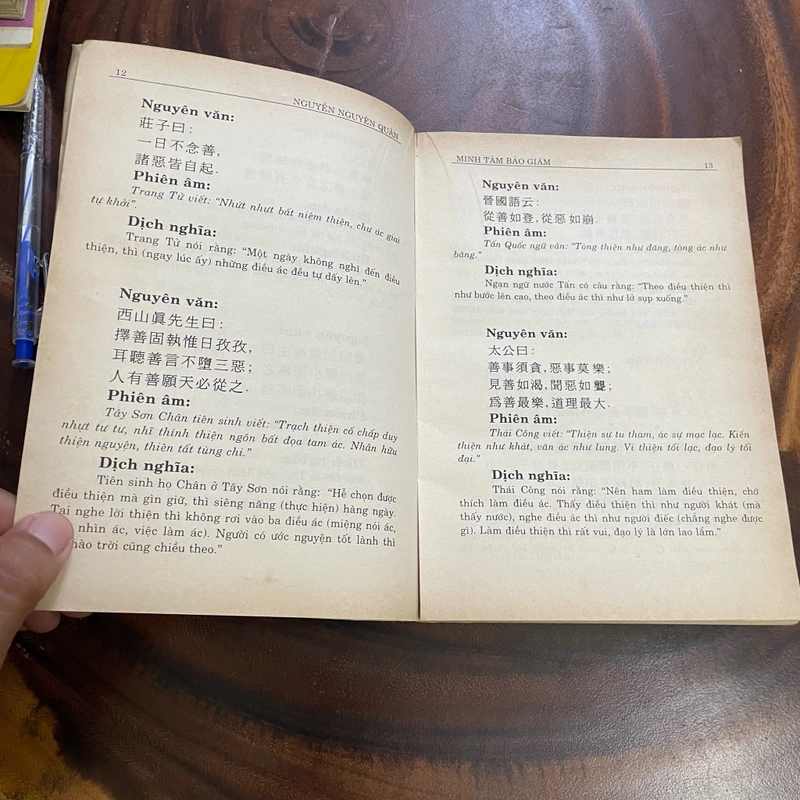 12
NGUYỄN NGUYÊN QUÂN
Nguyên văn:
莊子曰:
一日不念善,
諸惡皆自起.
Phiên âm:
Trang Tử viết: “Nhứt nhựt bất niệm thiện, chư ác giai
tự khởi”.
Dịch nghĩa:
Trang Tử nói rằng: “Một ngày không nghĩ đến điều
thiện, thì (ngay lúc ấy) những điều ác đều tự dấy lên.”
Nguyên văn:
西山眞先生曰:
擇善固執惟日孜孜,
耳聽善言不墮三惡;
人有善願天必從之.
Phiên âm:
Tây Sơn Chân tiên sinh viết: “Trạch thiện cố chấp duy
nhựt tư tư, nhĩ thính thiện ngôn bất đọa tam ác. Nhân hữu
thiện nguyện, thiên tất tùng chi.”
Dịch nghĩa:
Tiên sinh họ Chân ở Tây Sơn nói rằng: “Hễ chọn được
điều thiện mà gìn giữ, thì siêng năng (thực hiện) hàng ngày.
Tai nghe lời thiện thì không rơi vào ba điều ác (miệng nói ác,
nhìn ác, việc làm ác). Người có ước nguyện tốt lành thì
trời cũng chiều theo.”
MINH TÂM BẢO GIÁM
13
Nguyên văn:
晉國語云:
從善如登, 從惡如崩.
Phiên âm:
Tấn Quốc ngữ vân: “Tòng thiện như đăng, tòng ác như
băng.”
Dịch nghĩa:
Ngạn ngữ nước Tấn có câu rằng: “Theo điều thiện thì
như bước lên cao, theo điều ác thì như lở sụp xuống.”
Nguyên văn:
太公曰:
善事須貪, 惡事莫樂;
見善如渴, 聞惡如聾;
爲善最樂, 道理最大.
Phiên âm:
Thái Công viết: “Thiện sự tu tham, ác sự mạc lạc. Kiến
thiện như khát, văn ác như lung. Vi thiện tối lạc, đạo lý tối
đại.”
Dịch nghĩa:
Thái Công nói rằng: “Nên ham làm điều thiện, chớ
thích làm điều ác. Thấy điều thiện thì như người khát (mà
thấy nước), nghe điều ác thì như người điếc (chẳng nghe được
gì). Làm điều thiện thì rất vui, đạo lý là lớn lao lắm.”